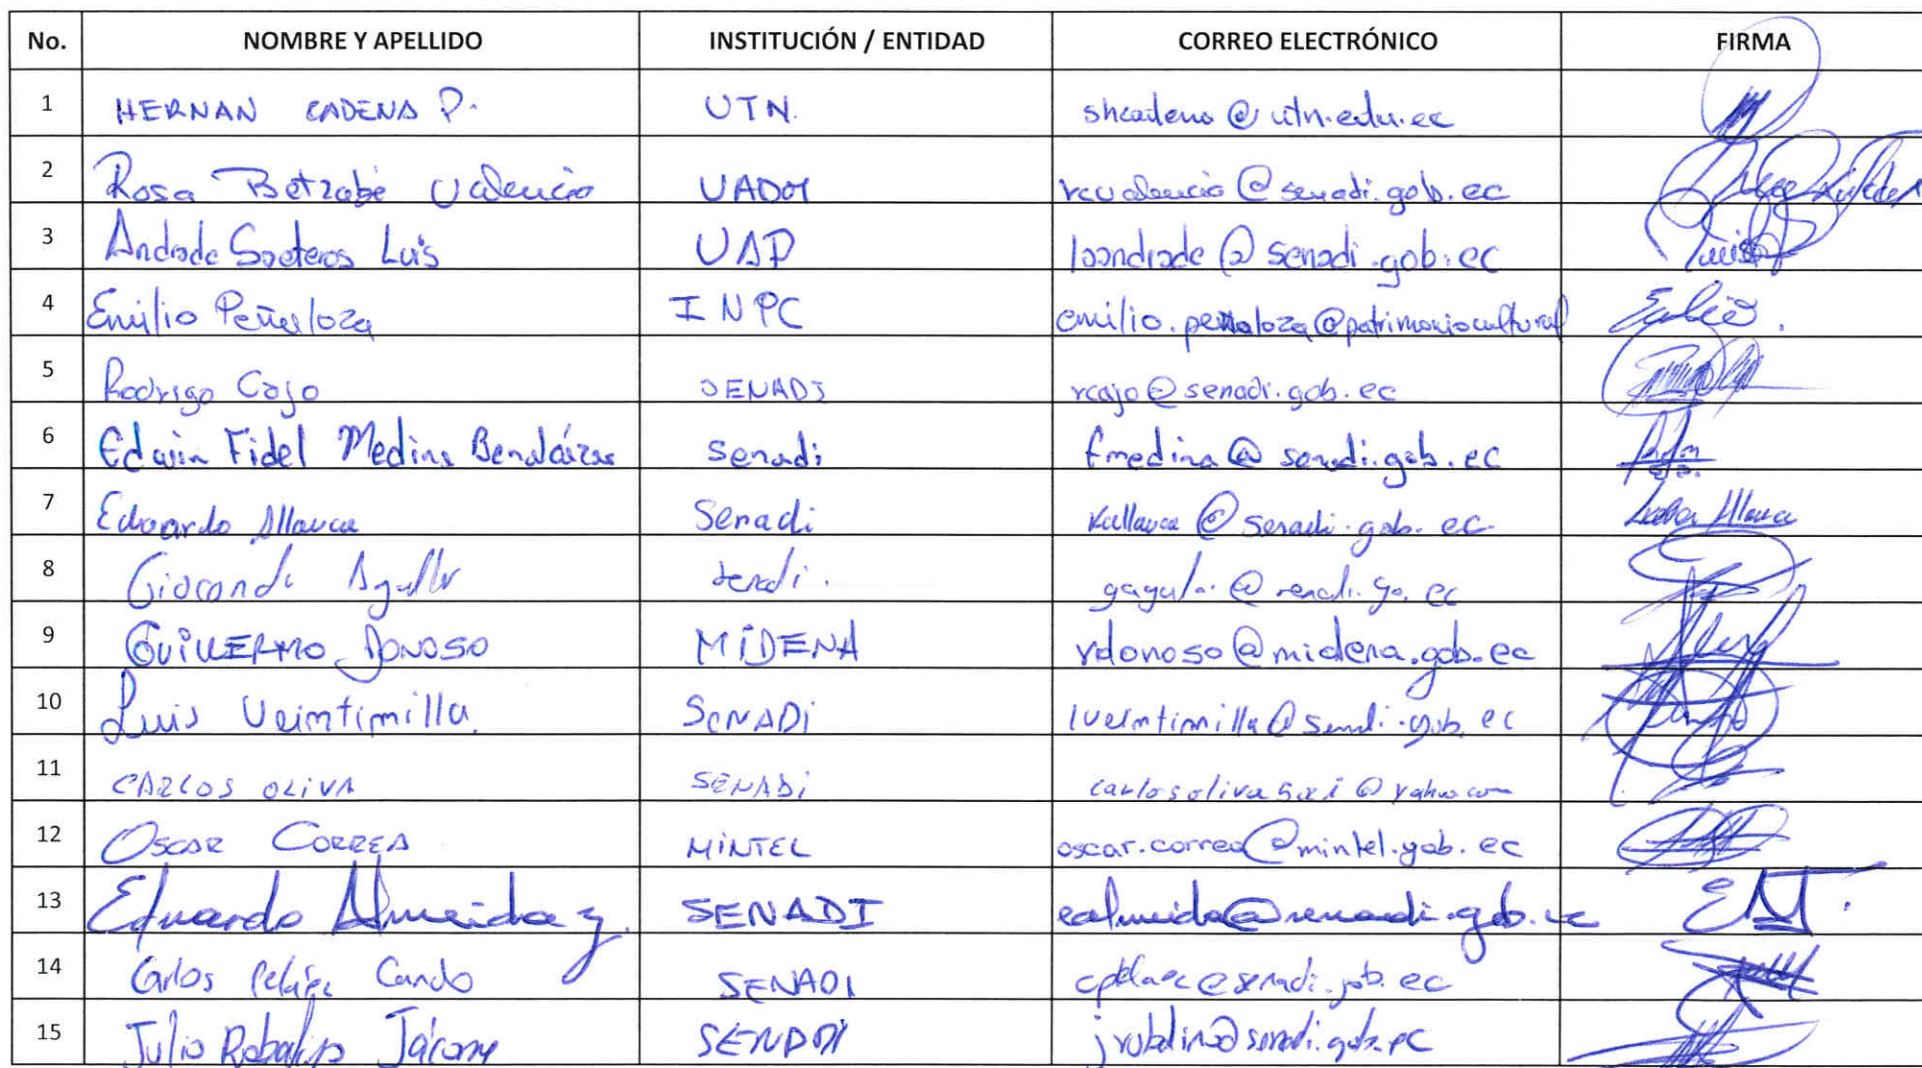 No. NOMBRE Y APELLIDO INSTITUCIÓN / ENTIDAD CORREO ELECTRÓNICO FIRMA
1 HERNAN CADENA P. UTN. shcadena@utn.edu.ec
2 Rosa Betzabé Valencia rcvalencia@senadi.gob.ec
3 Andrade Saeteros Luis UAP laandrade@senadi.gob.ec Luis
4 Emilio Peñaloza INPC emilio.penaloza@patrimoniocultural Emilio.
5 Rodrigo Cajo SENADI rcajo@senadi.gob.ec
6 Edwin Fidel Medina Senadi fmedina@senadi.gob.ec
7 Eduardo Allauca Senadi @senadi.gob.ec. Allauca
8 Gioconda Senadi.
9 GUILLERMO DONOSO MIDENA rdonoso@midena.gob.ec
10 Luis Veintimilla. SENADI lveintimilla@senadi.gob.ec
11 CARLOS OLIVA SENADI
12 OSCAR CORREA MINTEL oscar.correa@mintel.gob.ec
13 Eduardo Almeida SENADI ealmeida@senadi.gob.ec
14 Carlos Cando SENADI
15 Julio SENADI